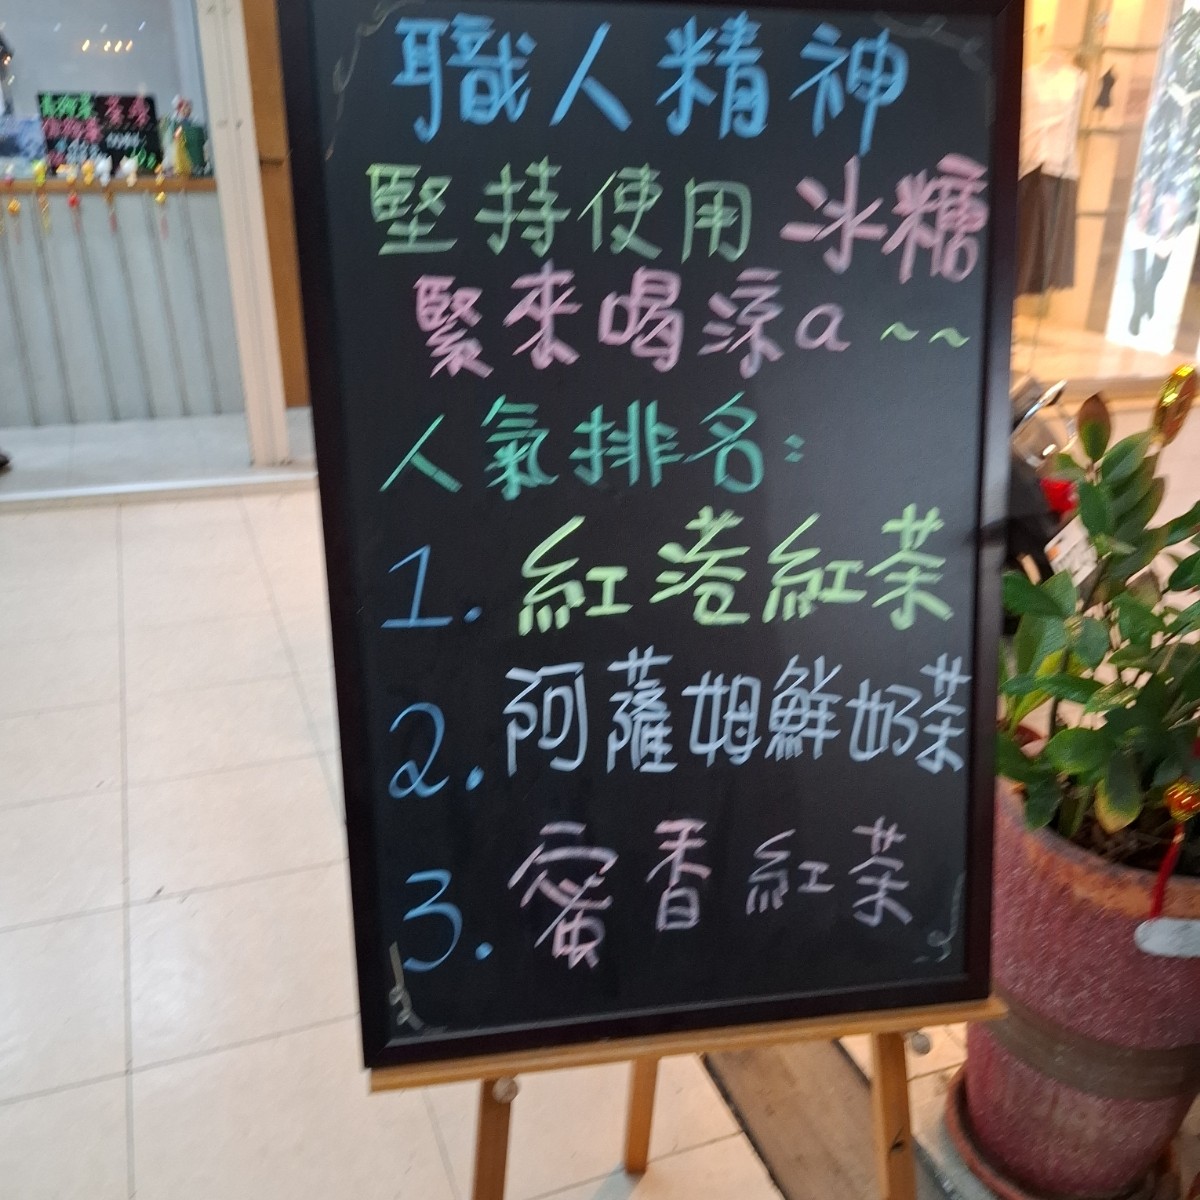 職人精神
堅持使用冰糖
緊來喝涼a~~
人氣排名:
1. 紅港紅茶
2. 阿薩姆鮮奶茶
3. 蜜香紅茶